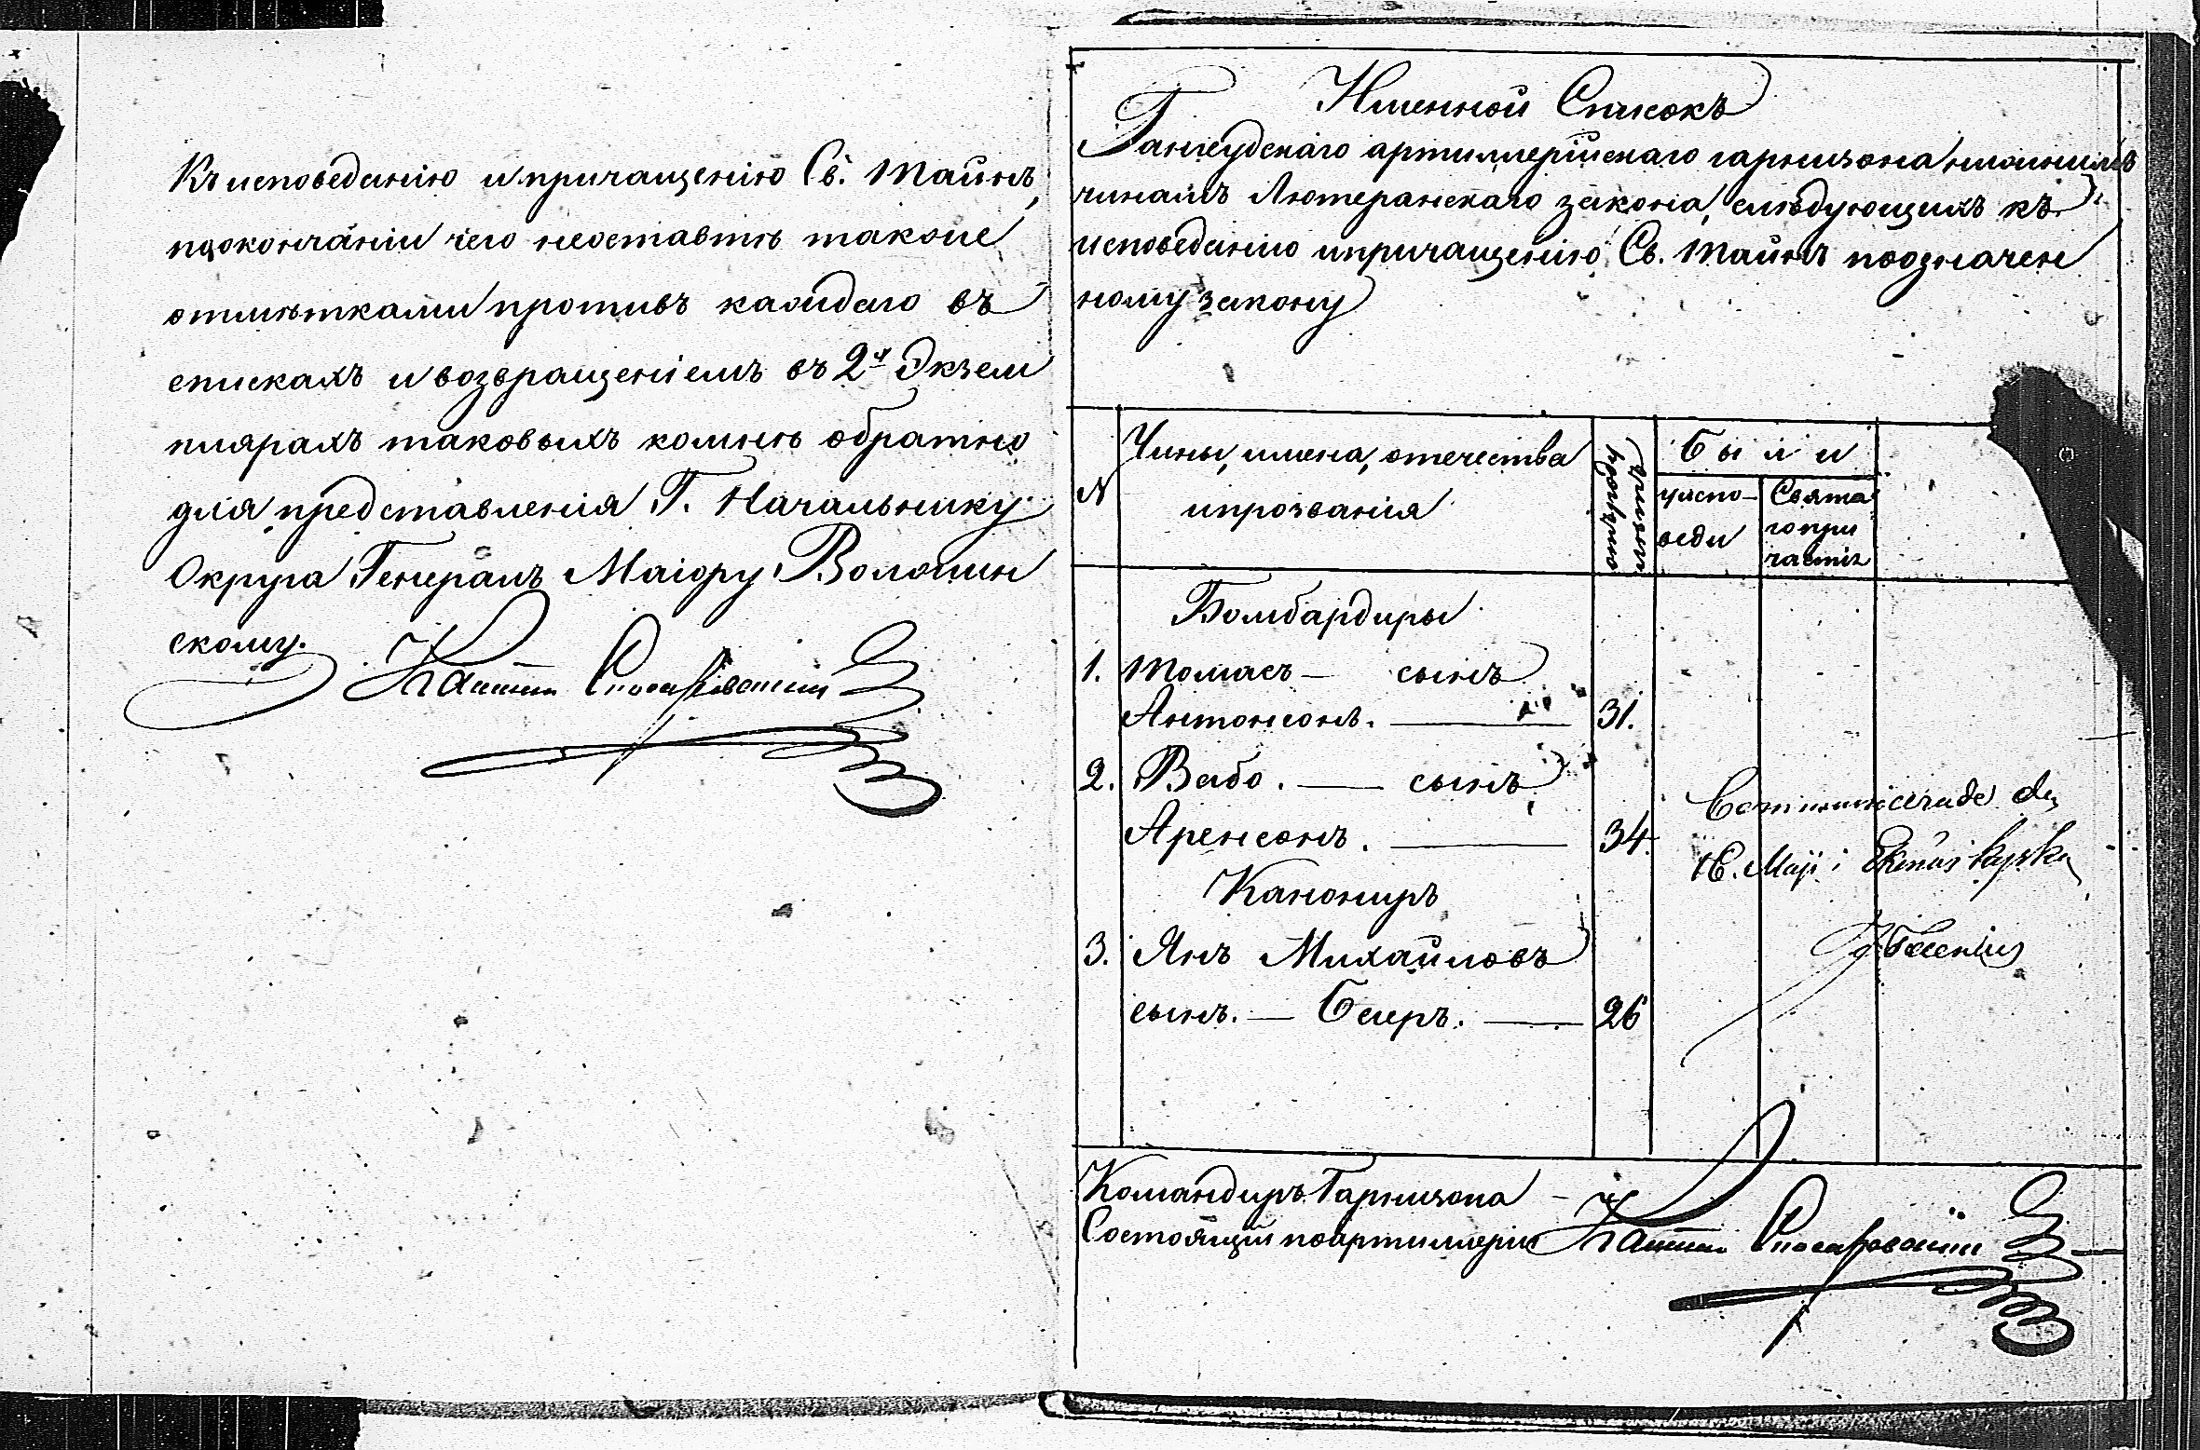 Къ исповеданію и причащенію Св. Тайнъ,
по окончаніи чего неоставить такоже
отметками противъ каждаго въ
спискахъ и возвращеніемъ въ 2х Экзем
плярахъ таковыхъ комне обратно
для представленія Г. Начальнику
Округа Генералъ Маіору Волошин
скому.
Капитан
Именной Списокъ
Гангеудскаго артиллерійскаго гарнизона нижнимъ
чинамъ Лютеранскаго закона, следующихъ къ
исповеданію и причащенію Св. Тайнъ по означен
ному закону
N
Чины, имена, отечества
и прозванія
Были
у испо-
веди
Свята
го при
частія
Бомбардиры
1. Томасъ — сынъ
Антонсонъ. — 31.
2. Вабо. — сынъ
Аренсонъ. — 34.
Канониръ
3. Янъ Михайловъ
сынъ. — Беиръ. — 26
Communicerade d.
16. Maji i Ekenäs kyrka
Командиръ Гарнизона
Состоящій по артиллеріи Капитан